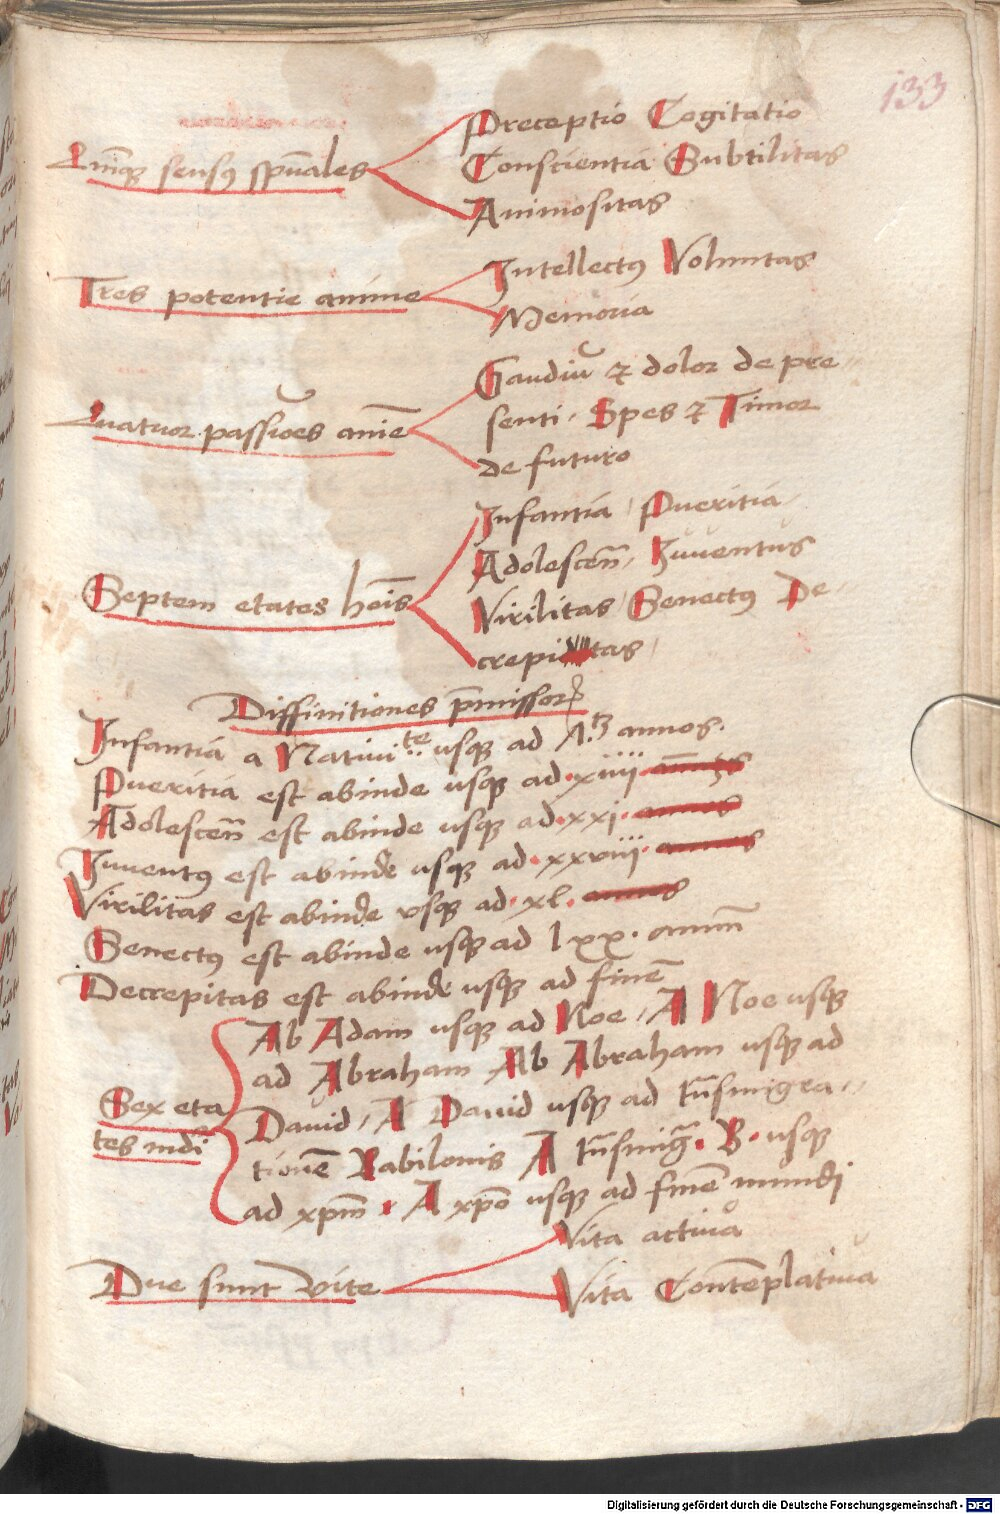 133
Quinq sensꝰ spūales
Preceptio Cogitatio
Conscientia Subtilitas
Animositas
Tres potentie anime
Intellectꝰ Voluntas
Memoria
Quatuor passiōes anīe
Gaudiū & dolor de pre
senti. Spes & Timor
de futuro
Septem etates hoīs
Infantia / Pueritia
Adolescen̄, Iuventus
Virilitas / Senectꝰ De
crepitas
Diffinitiones p̄missoꝝ
Infantia a Nativi te usq ad annos.
Pueritia est abinde usq ad .xiiij. annos
Adolescen̄ est abinde usq ad .xxj. annos
Iuventꝰ est abinde usq ad .xxviij. annos
Virilitas est abinde vsq ad .xl. annos
Senectꝰ est abinde usq ad lxx. annū
Decrepitas est abinde usq ad finē
Sex eta
tes mdī
Ab Adam usq ad Noe, A Noe usq
ad Abraham Ab Abraham usq ad
David, A David usq ad tn̄smigra
tionē Babilonis A tn̄smig̃. B. usq
ad xpm̄. A xpō usq ad finē mundi
Due sunt vite
Vita activa
Vita Contēplativa
Digitalisierung gefördert durch die Deutsche Forschungsgemeinschaft - DFG